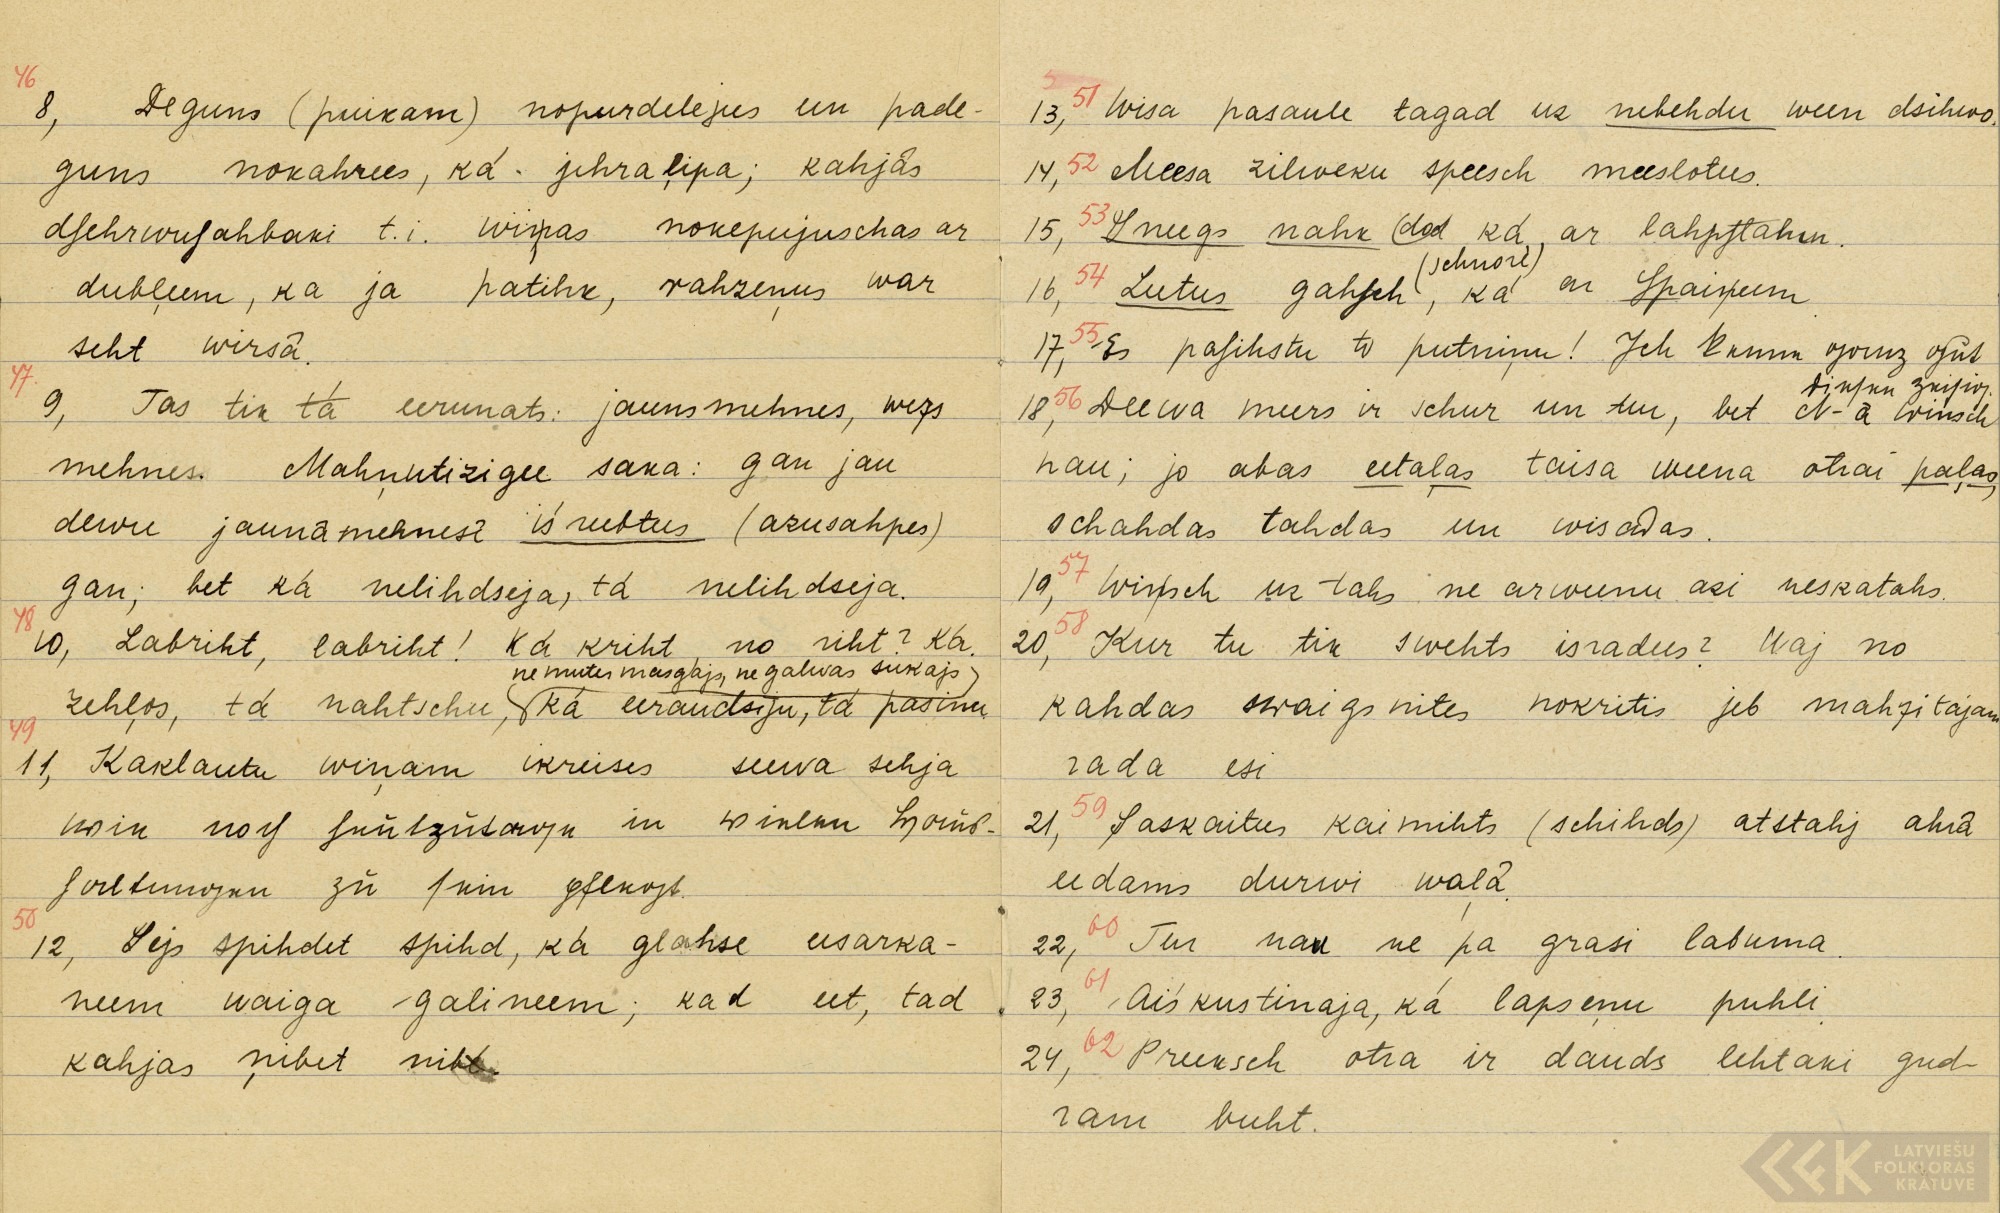 46
8, Deguns (puikam) nopurdelejus un pade-
guns nokahrees, ká jehra ļipa; kahjās
dsehrwusahbaki t.i. wiņas nokepujuschas ar
dubļeem, ka ja patihk, rahzeņus war
seht wirsā.
47.
9, Tas tik tá eerunats: jauns mehnes, wezs
mehnes. Mahņutizigee saka: gan jau
dewu jaunā mehnesī iś reebtus (azusahpes)
gan; bet ká nelihdseja, tá nelihdseja.
48
10, Labriht, labriht! Ká kriht no riht? Ká
ne mutes masgajs, ne galwas sukajs
zehļos, tá nahtschu, (ká eeraudsiju, tá pasinu.
49
11, Kaklautu wiņam ikreises seewa sehja
wie noch heutzutage in vielen Haus-
haltungen zu sein pflegt.
50
12, Sejs spihdet spihd, ká glahse eesarka-
neem waiga galineem; kad eet, tad
kahjas ņibet nibt.
13, 51 Wisa pasaule tagad us nebehdu ween dsihwo.
14, 52 Meesa zilweku speesch meeslotees.
15, 53 Sneegs nahk (dod ká ar lahpstahm.
(schnore)
16, 54 Leetus gahsch, ká ar Spaiņeem
17, 55 Es pasihstu to putniņu! Ich kenne ganz gut
diesen Zeisig.
18, 56 Deewa meers ir schur un tur, bet N-ā wiņsch
nau; jo abas eetaļas taisa weena otrai paļas,
schahdas tahdas un wisādas.
19, 57 Wiņsch us tahs ne ar weenu azi neskatahs.
20, 58 Kur tu tik swehts isradees? Waj no
kahdas swaigsnites nokritis jeb mahzitajam
rada esi
21, 59 Saskaitees kaimihts (schihds) atstahj ahrā
eedams durwi waļā.
22, 60 Tur nau ne pa grasi labuma.
23, 61 Aiśkustinaja, ká lapseņu puhli.
24, 62 Preeksch otra ir dauds lehtaki gud-
ram buht.
LATVIEŠU
FOLKLORAS
KRĀTUVE